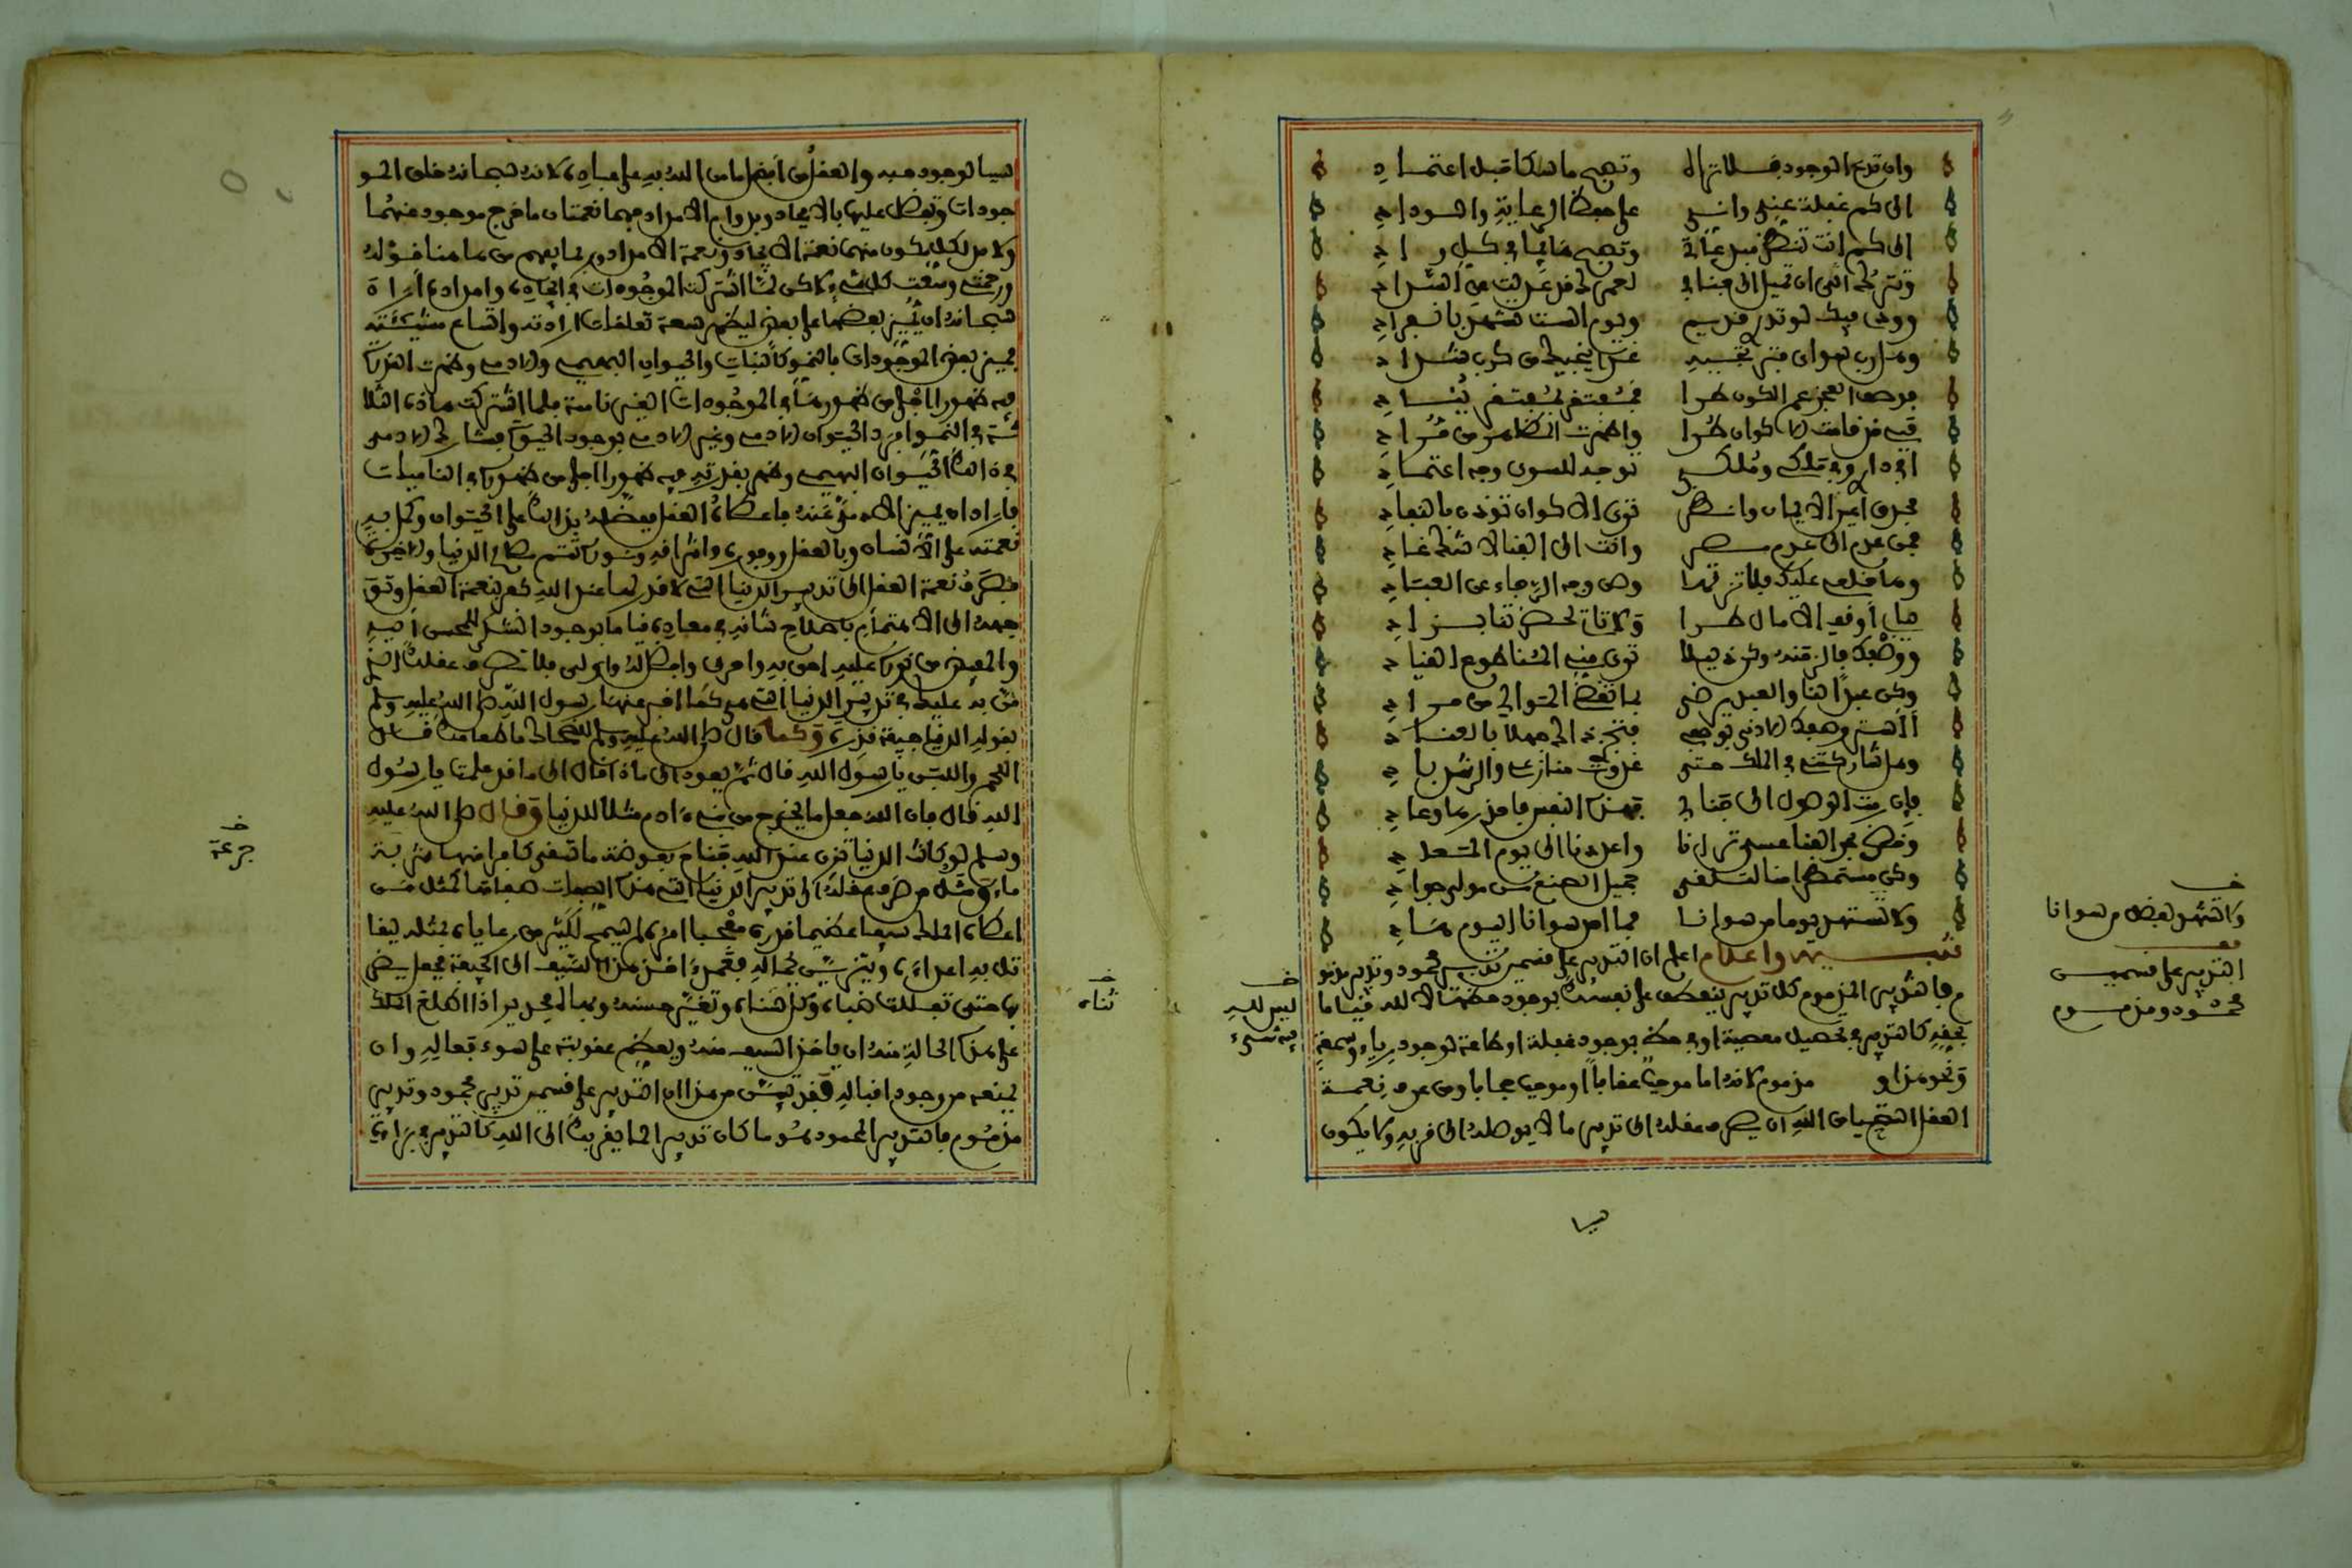 وان تدع الوجود فلا تراه وتصبح ماسكا حبل اعتماد
الى كم غفلة عني واني على حفظ الرعاية والوداد
الى كم انت تنظر مبدعاتي وتصبح هائما في كل واد
وتترك ان تميل الى جنابي لعمرك قد عدلت عن السداد
وودي فيك لو تدري قديم ويوم الست يشهد بانفرادي
وهل رب سواي فترتجيه غدا ينجيك من كرب شداد
فوصف العجز عم الكون طرا فمفتقر لمفتقر ينادي
فبي قد قامت الاكوان طرا واظهرت المظاهر من مرادي
افي داري وفي ملكي وملكي توجه للسوى وجه اعتماد
فحدق اعين الايمان وانظر ترى الاكوان تؤذن بالنفاد
فمن عدم الى عدم مصير وانت الى الفنا لا شك غاد
وها خلعي عليك فلا تزلها وصن وجه الرجاء عن العباد
ببابي اوقف الامال طرا ولا تات لحضرتنا بزاد
ووصفك فالزمنه وكن ذليلا ترى مني المنا طوع القياد
وكن عبدا لنا والعبد يرضى بما تقضي الموالي من مراد
أأستر وصفك الادنى بوصفي فتجزي ذاك جهلا بالعناد
وهل شاركتني في الملك حتى غدوت منازعي والرشد باد
فان رمت الوصول الى جنابي فهذي النفس فاحذرها وعاد
وخض بحر الفنا عسى ترانا واعددنا الى يوم المعاد
وكن مستمطرا منا لتلقى جميل الصنع من مولى جواد
ولا تستهد يوما من سوانا فما احد سوانا اليوم هاد
تنبيه واعلام اعلم ان التدبير على قسمين تدبير محمود وتدبير مذمو
م فالتدبير المذموم كل تدبير ينعطف على نفسك بوجود حظها لا لله قياما
بحقه كالتدبير في تحصيل معصية او في حظ بوجود غفلة او طاعة لوجود رياء وسمعة
ونحو هذا و مذموم لانه اما موجب عقابا او موجب حجابا ومن عرف نعمة
العقل استحيا من الله ان يصرف عقله الى تدبير ما لا يوصله الى قربه ولا يكون
سببا
ولا تشهد لبعض من سوانا
التدبير على قسمين
محمود ومذموم
ليس لله
فيه شيء
سببا لوجود حبه والعقل من افضل ما من الله به على عباده لانه سبحانه خلق المو
جودات وتفضل عليها بالايجاد وبدوام الامداد فهما نعمتان ما خرج موجود عنهما
ولا بد لكل مكون منهما نعمة الايجاد ونعمة الامداد وربما يفهم من هاهنا قوله
ورحمتي وسعت كل شيء لاكن لما اشتركت الموجودات في ايجاده وامداده اراد
سبحانه ان يميز بعضها على بعض ليظهر سعة تعلقات ارادته واتساع مشيئته
فميز بعض الموجودات بالنمو كالنبات والحيوان البهيمي والادمي وظهرت القدرة
فيه ظهورا اجلى من ظهورها في الموجودات الغير نامية فلما اشتركت هاذه الثلا
ثة في النمو افرد الحيوان الادمي وغير الادمي بوجود الحياة فشارك الادمي
في ذلك الحيوان البهيمي وظهر بقدرته فيه ظهورا اجلى من ظهورها في الناميات
فاراد ان يميز الادمي عنه فاعطاه العقل ففضله بذلك على الحيوان وكمل به
نعمته على الانسان وبالعقل ووفوره واشراقه ونوره تتم مصالح الدنيا والاخرة
فصرف نعمة العقل الى تدبير الدنيا التي لا قدر لها عند الله كفر لنعمة العقل وتو
جهه الى الاهتمام باصلاح شانه في معاده قياما بوجود الشكر للمحسن اليه
والمفيض من نوره عليه احق به واحرى وافضل له واولى فلا تصرف عقلك الذي
من به عليك في تدبير الدنيا التي هي كما اخبر عنها رسول الله صلى الله عليه وسلم
بقوله الدنيا جيفة قذرة وكما قال صلى الله عليه وسلم للضحاك ما طعامك قال
اللحم واللبن يا رسول الله قال ثم يعود الى ماذا قال الى ما قد علمت يا رسول
الله قال فان الله جعل ما يخرج من ابن ادم مثلا للدنيا وقال صلى الله عليه
وسلم لو كانت الدنيا تزن عند الله جناح بعوضة ما سقى كافرا منها شربة
ماء ومثل من صرف عقله الى تدبير الدنيا التي هذه الصفات صفاتها كمثل من
اعطاه الملك سيفا عظيما قدره مفخما امره لم يسمح لكثير من رعاياه بمثله ليقا
تل به اعداءه ويتزين بحماله فعمد اخذ هذا السيف الى الجيفة فجعل يضر
بها حتى تفلل ضباه وكل سناه وتغير حسنه وبهاله فجدير اذا اطلع الملك
على هذه الحالة منه ان ياخذ السيف منه ويعظم عقوبته على سوء فعاله وان
يمنعه من وجود اقباله فقد تبين من هذا ان التدبير على قسمين تدبير محمود وتدبير
مذموم فالتدبير المحمود هو ما كان تدبيرا لما يقربك الى الله كالتدبير في براءة
جرعة
ثناه